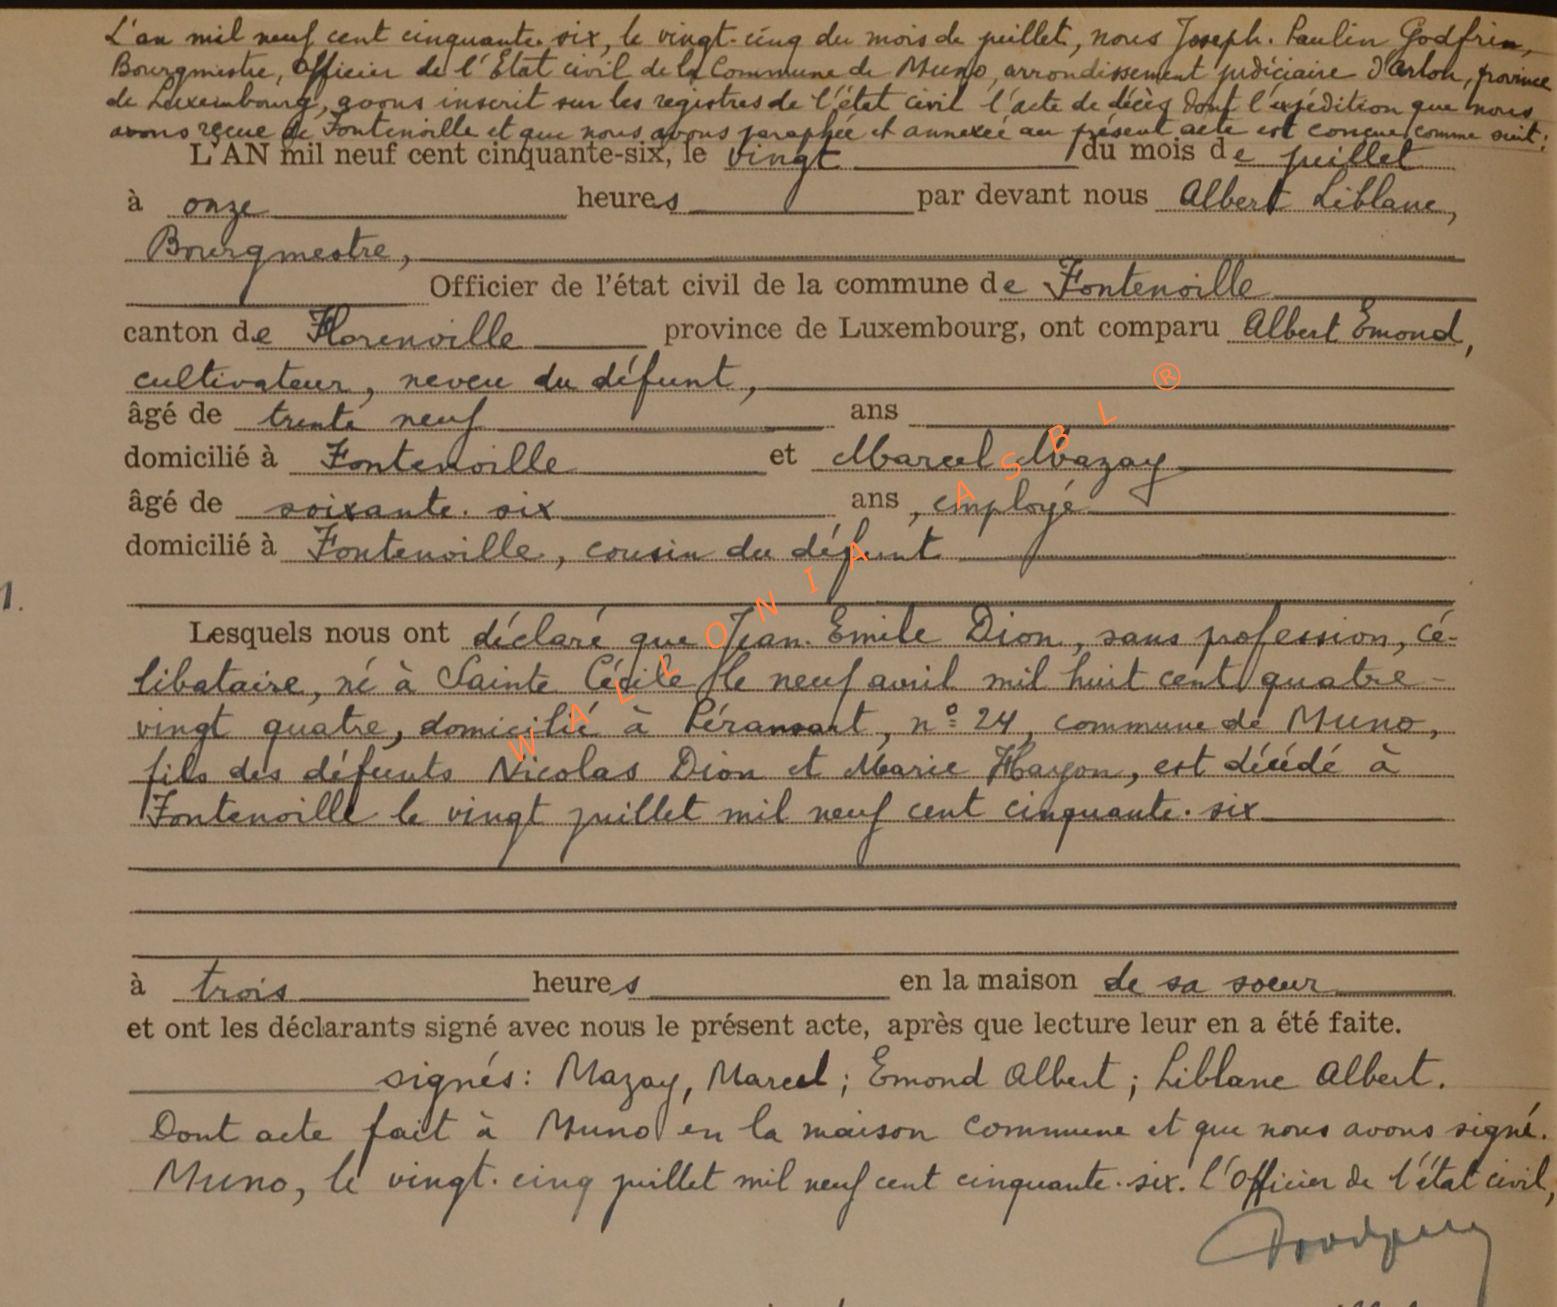 L'an mil neuf cent cinquante-six, le vingt-cinq du mois de juillet, nous Joseph-Paulin Godfrin,
Bourgmestre, Officier de l'Etat civil de la Commune de Muno, arrondissement judiciaire d'Arlon, province
de Luxembourg, avons inscrit sur les registres de l'état civil l'acte de décès dont l'expédition que nous
avons reçue de Fontenoille et que nous avons paraphée et annexée au présent acte est conçue comme suit:
L'AN mil neuf cent cinquante-six, le vingt du mois de juillet
à onze heures par devant nous Albert Liblanc,
Bourgmestre,
Officier de l'état civil de la commune de Fontenoille
canton de Florenville province de Luxembourg, ont comparu Albert Emond,
cultivateur, neveu du défunt,
âgé de trente neuf ans
domicilié à Fontenoille et Marcel Mazay
âgé de soixante-six ans, employé
domicilié à Fontenoille, cousin du défunt
1.
Lesquels nous ont déclaré que Jean-Emile Dion, sans profession, cé-
libataire, né à Sainte Cécile le neuf avril mil huit cent quatre-
vingt quatre, domicilié à Péransart, n° 24, commune de Muno,
fils des défunts Nicolas Dion et Marie Hayon, est décédé à
Fontenoille le vingt juillet mil neuf cent cinquante-six
à trois heures en la maison de sa soeur
et ont les déclarants signé avec nous le présent acte, après que lecture leur en a été faite.
signés: Mazay, Marcel; Emond Albert; Liblanc Albert.
Dont acte fait à Muno en la maison commune et que nous avons signé.
Muno, le vingt-cinq juillet mil neuf cent cinquante-six. l'Officier de l'état civil,
WALLONIA ASBL ®